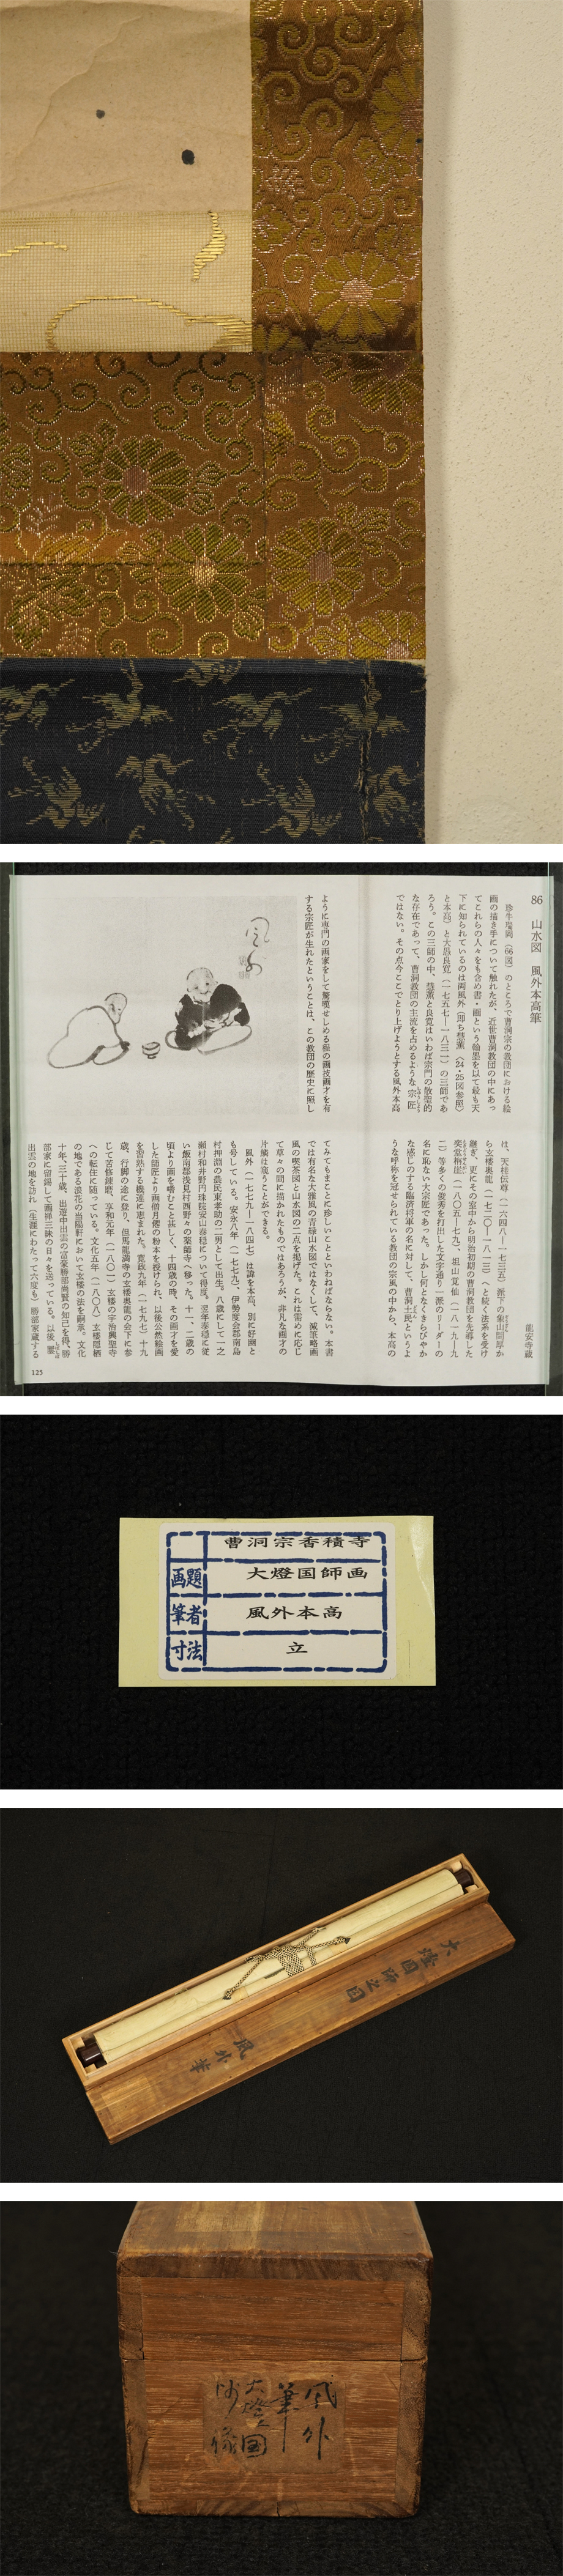 86　山水図　風外本高筆
龍安寺蔵
珍牛瑞岡（66図）のところで曹洞宗の教団における絵
画の描き手について触れたが、近世曹洞教団の中にあっ
てこれらの人々をも含め書・画という翰墨を以て最も天
下に知られているのは両風外（即ち彗薫〈24・25図参照〉
と本高）と大愚良寛（一七五七―一八三一）の三師であ
ろう。この三師の中、彗薫と良寛はいわば宗門の散聖的
な存在であって、曹洞教団の主流を占めるような宗匠
ではない。その点今ここでとり上げようとする風外本高
は、天桂伝尊（一六四八―一七三五）派下の象山問厚か
ら玄楼奥龍（一七二〇―一八一三）へと続く法系を受け
継ぎ、更にその室中から明治初期の曹洞教団を先導した
奕堂栴崖（一八〇五―七九）、坦山覚仙（一八一九―九
二）等多くの俊秀を打出した文字通り一派のリーダーの
名に恥ない大宗匠であった。しかし何となくきらびやか
な感じのする臨済将軍の名に対して、曹洞土民というよ
うな呼称を冠せられている教団の宗風の中から、本高の
ように専門の画家をして驚嘆せしめる程の画技画才を有
する宗匠が生れたということは、この教団の歴史に照し
てみてもまことに珍しいことといわねばならない。本書
では有名な大雅風の青緑山水図ではなくして、減筆略画
風の喫茶図と山水図の二点を掲げた。これは需めに応じ
て草々の間に描かれたものではあろうが、非凡な画才の
片鱗は窺うことができる。
風外（一七七九―一八四七）は諱を本高、別に好画と
も号している。安永八年（一七七九）伊勢度会郡南島
村押淵の農民東孝助の二男として出生。八歳にして一之
瀬村和井野円珠院安山泰穏について得度。翌年泰穏に従
い飯南郡浅見村西野々の薬師寺へ移った。十一、二歳の
頃より画を嗜むこと甚しく、十四歳の時、その画才を愛
した師匠より画僧月僊の粉本を授けられ、以後公然絵画
を習熟する機運に恵まれた。寛政九年（一七九七）十九
歳、行脚の途に登り、但馬龍満寺の玄楼奥龍の会下に参
じて苦修錬磨、享和元年（一八〇一）玄楼の宇治興聖寺
への転住に随っている。文化五年（一八〇八）玄楼隠栖
の地である浪花の当陽軒において玄楼の法を嗣承。文化
十年、三十歳、出遊中出雲の富豪勝部尚賢の知己を得、勝
部家に留錫して画禅三昧の日々を送っている。以後屢
出雲の地を訪れ（生涯にわたって六度も）勝部家蔵する
125
曹洞宗香積寺
画題　大燈国師画
筆者　風外本高
寸法　立
大燈国師之図
風外筆
風外
筆
大燈国
師像